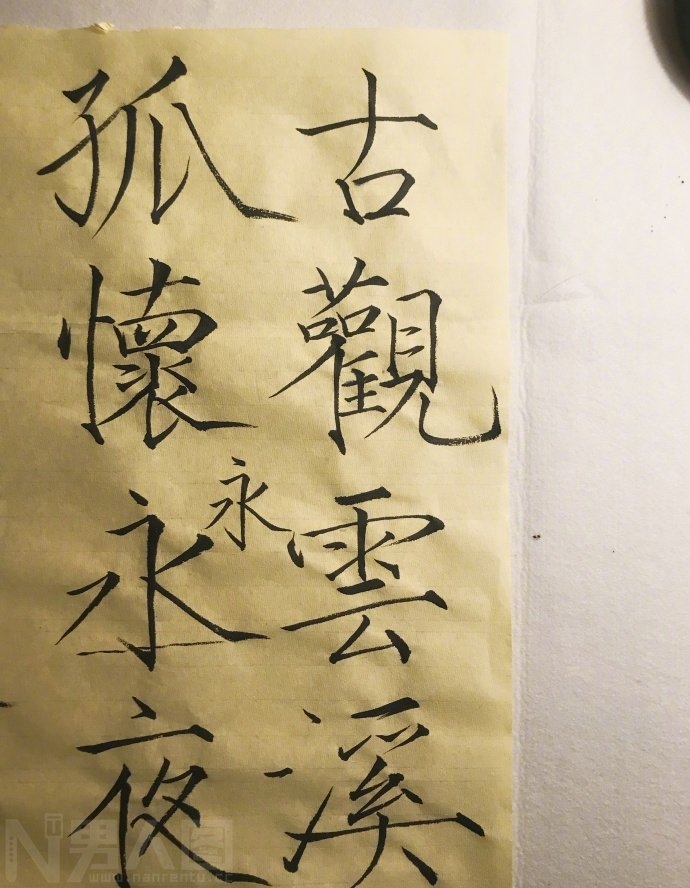 古觀雲溪
孤懷永夜
永
N男人图
www.nanrentu.cc